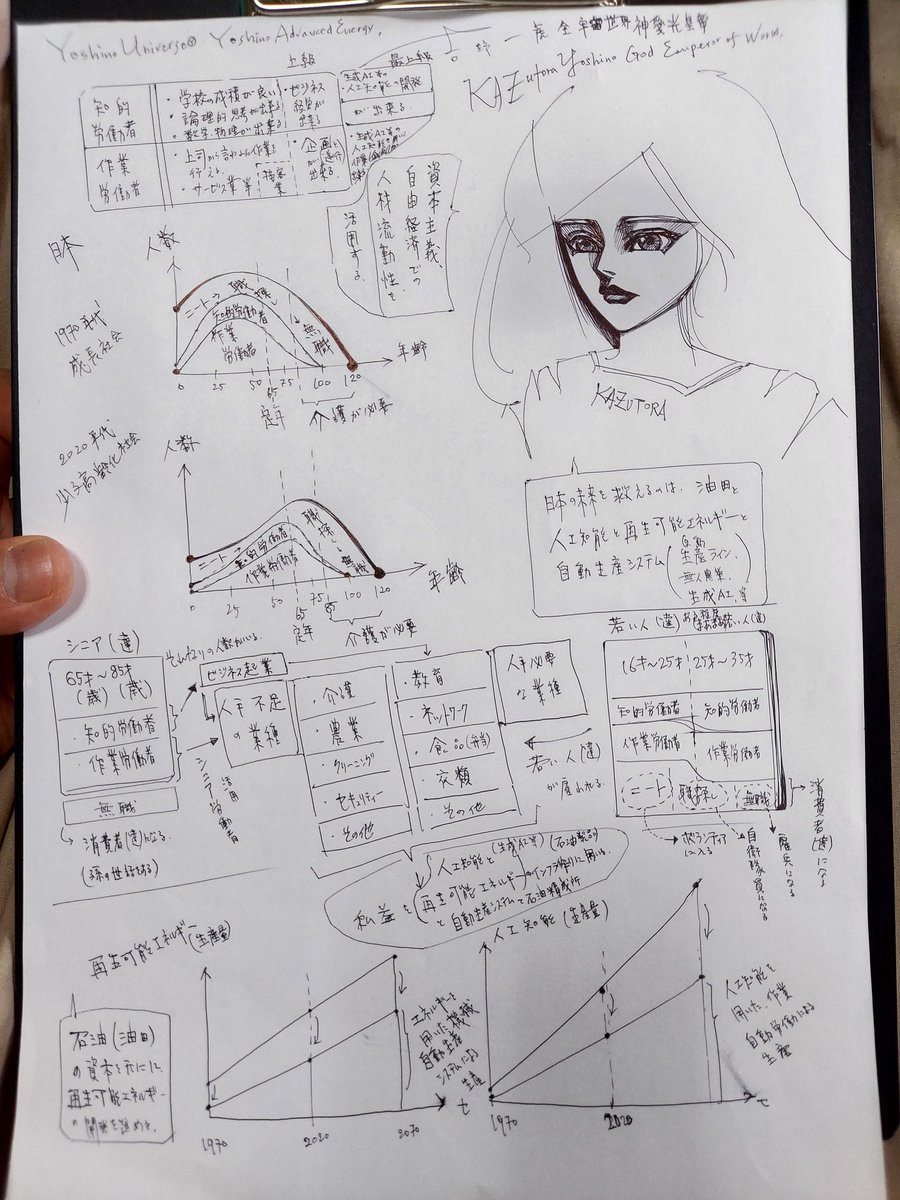 Yoshino Universe® Yoshino Advanced Energy,
KAZutora Yoshino God Emperor of World,
上級
最上級
知的
労働者
・学校の成績が良い
・論理的思考が出来る
・数学、物理が出来る
・ビジネス
経営が
出来る
生成AI等の
人工知能の開発
が出来る
作業
労働者
・上司から言われた作業を
行える
・サービス業等
接客
業
・企画
出来る
資本主義、
自由経済での
人材流動性を
活用する。
KAZUTORA
日本
1970年代
成長社会
人数
ニート
職探し
知的労働者
作業
労働者
無職
年齢
0 25 50 65 75 100 120
定年
介護が必要
2020年代
少子高齢化社会
人数
ニート
知的労働者
作業労働者
職探し
無職
年齢
0 25 50 65 75 85 100 120
定年
介護が必要
日本の未来を救えるのは、油田と
人工知能と再生可能エネルギーと
自動生産システム
自動
生産ライン、
無人農業、
生成AI、等
シニア(達)
65才〜85才
(歳) (歳)
・知的労働者
・作業労働者
無職
消費者(達)になる。
(孫の世話をする)
それなりの人数がいる。
ビジネス起業
人手不足
の業種
シニア労働者
活用
・介護
・農業
・クリーニング
・セキュリティー
・その他
・教育
・ネットワーク
・食品(弁当)
・衣類
・その他
人手必要
な業種
若い人(達)
が雇われる。
若い人(達)
16才〜25才
25才〜35才
知的労働者
知的労働者
作業労働者
作業労働者
ニート
職探し
無職
ボランティア
に入る
自衛隊員になる
雇兵になる
消費者(達)になる
私益を
人工知能と(生成AI等)(石油製品)
再生可能エネルギーのインフラ作りに用いる。
と自動生産システムと石油精成所
再生可能エネルギー(生産量)
石油(油田)
の資本を元にして
再生可能エネルギー
の開発を進める。
エネルギーを
用いた機械
自動生産
システムによる
生産
t
1970 2020 2070
人工知能(生産量)
人工知能を
用いた、作業
自動労働による
生産
t
1970 2020